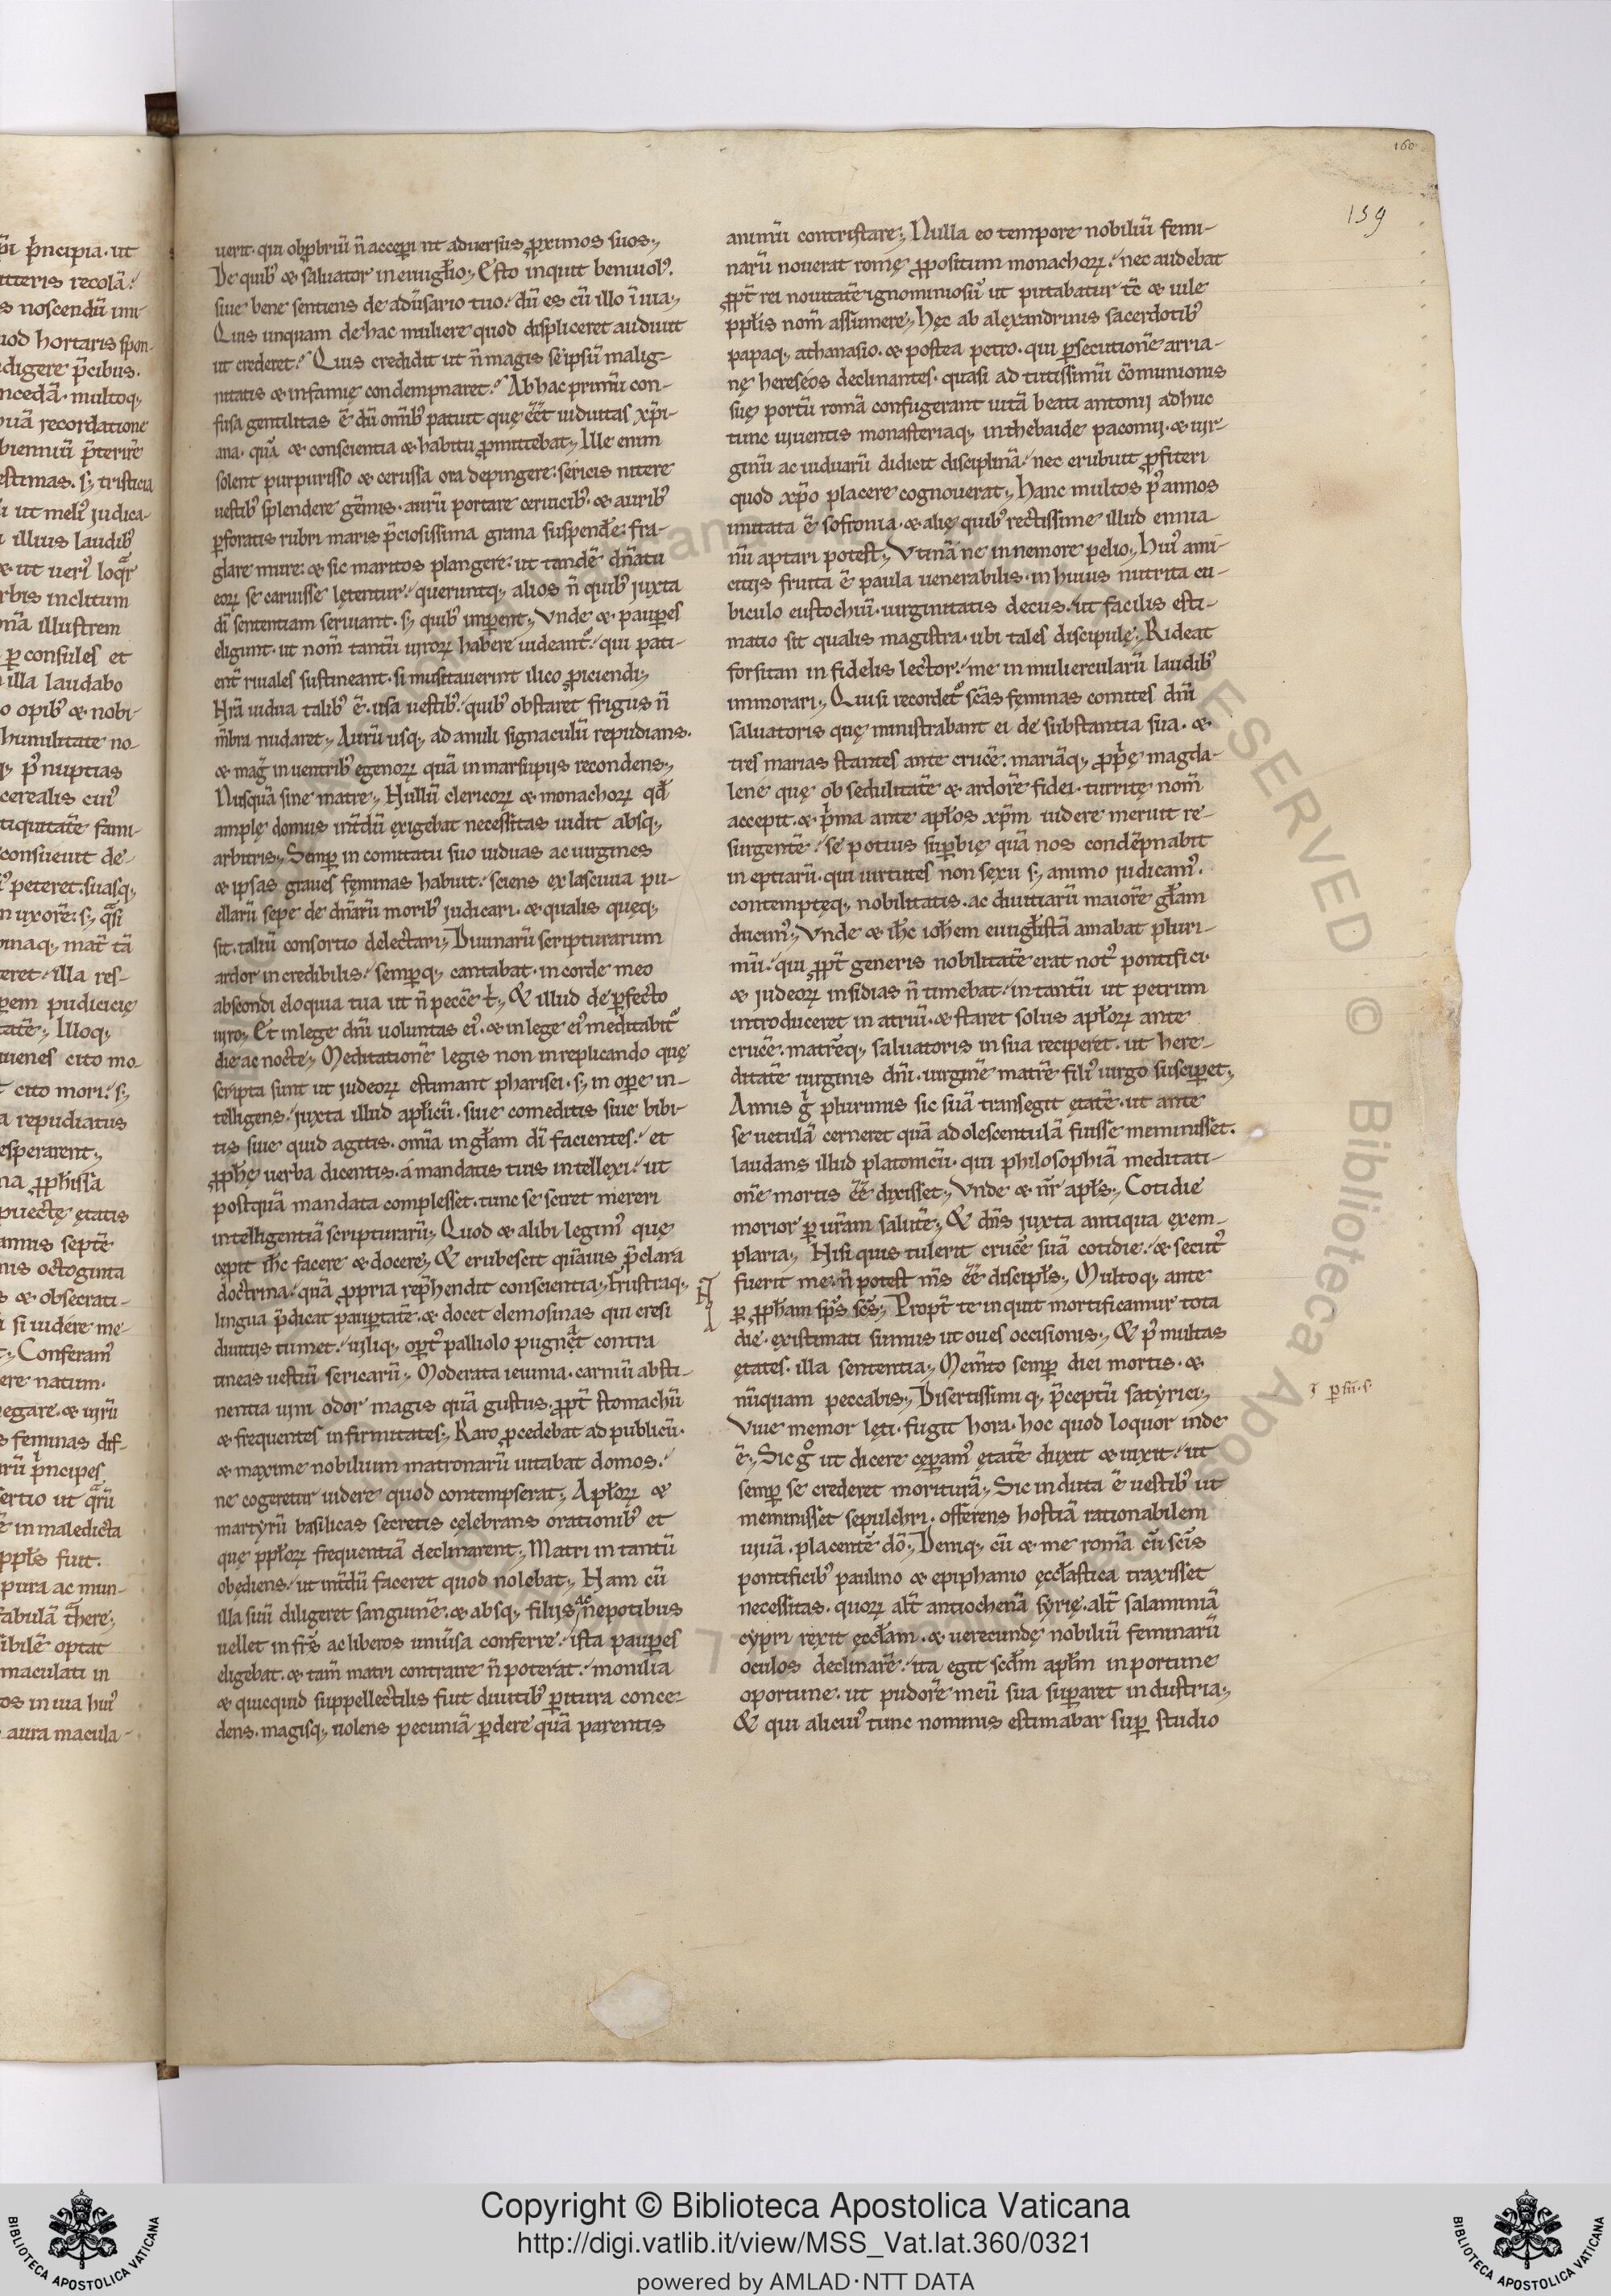 160
159
uerit. qui obprobriū n̄ accepi nt aduersus proximos suos.
De quib; & saluator in euuglio. Esto inquit beniuol'.
siue bene sentiens de aduersario tuo. dū es cū illo ī uia.
Quis unquam de hac muliere quod displiceret audiuit
ut crederet. Quis credidit ut n̄ magis seipsū malig-
nitatis & infamię condempnaret. Ab hac primū con-
fusa gentilitas ē dū omīb; patuit quę eēt uiduitas xp̄i-
ana. quā & conscientia & habitu promittebat. Ille enim
solent purpurisso & cerussa ora depingere. sericis nitere
uestib; splendere gēmis. aurū portare ceruicib; & aurib;
perforatis rubri maris p̄ciosissima grana suspendere. fra-
glare mure. & sic maritos plangere. ut tandē dn̄atu
eorꝝ se caruisse lętentur. queruntq; alios n̄ quib; juxta
dī sententiam seruiant. s; quib; imperent. Vnde & pauperes
eligunt. ut nom̄ tantū uirorꝝ habere uideant᷑. qui pati-
ent̄ riuales sustineant. si musitauerint ilico proiciendi.
Nrā uidua talib; ē. usa uestib; quib; obstaret frigus n̄
m̄bra nudaret. Aurū usq; ad anuli signaculū repudians.
& maḡ in uentrib; egenorꝝ quā in marsupijs recondens.
Nusquā sine matre. Nullū clericorꝝ & monachorꝝ qđ
amplę domus int̄dū exigebat necessitas uidit absq;
arbitris. Semper in comitatu suo uiduas ac uirgines
& ipsas graues feminas habuit. sciens ex lasciuia pu-
ellarū sepe de dn̄arū morib; judicari. & qualis quęq;
sit. taliū consortio delectari. Diuinarū scripturarum
ardor incredibilis. semperq; cantabat. in corde meo
abscondi eloquia tua ut n̄ peccē t'. & illud de perfecto
uiro. Et in lege dn̄i uoluntas ei'. & in lege ei' meditabit᷑
die ac nocte. Meditationē legis non in replicando quę
scripta sunt ut judeorꝝ estimant pharisei. s; in opere in-
telligens. juxta illud aplicū. siue comeditis siue bibi-
tis siue quid agitis. omīa in glam dī facientes. et
prophę uerba dicentis. a mandatis tuis intellexi. ut
postquā mandata complesset. tunc se sciret mereri
intelligentiā scripturarū. Quod & alibi legim' quę
cępit ihc facere & docere. & erubescit quāuis p̄clara
doctrina. quā propria rep̄hendit conscientia. Frustraq;
lingua p̄dicat paupertatē. & docet elemosinas qui cresi
diuitijs tumet. uiliq; opert' palliolo pugnat contra
tineas uestiū sericarū. Moderata ieiunia. carniū absti-
nentia uini odor magis quā gustus. propt̄ stomachū
& frequentes infirmitates. Raro procedebat ad publicū.
& maxime nobilium matronarū uitabat domos.
ne cogeretur uidere quod contempserat. Aplorꝝ &
martyrū basilicas secretis cęlebrans orationib; et
quę pplorꝝ frequentiā declinarent. Matri in tantū
obędiens. ut int̄dū faceret quod nolebat. Nam cū
illa suū diligeret sanguinē. & absq; filijs ac nepotibus
uellet in fr̄is ac liberos uniuersa conferre. ista pauperes
eligebat. & tam̄ matri contraire n̄ poterat. monilia
& quicquid suppellectilis fuit diuitib; peritura conce-
dens. magisq; uolens pecuniā perdere quā parentis
animū contristare. Nulla eo tempore nobiliū femi-
narū nouerat romę propositum monachorꝝ. nec audebat
propt̄ rei nouitatē ignominiosū ut putabatur tc̄ & uile
in pplis nom̄ assumere. Hęc ab alexandrinis sacerdotib;
papaq; athanasio. & postea petro. qui persecutionē arria-
nę hereseos declinantes. quasi ad tutissimū cōmunionis
suę portū romā confugerant uitā beati antonij adhuc
tunc uiuentis monasteriaq; in thebaide pacomij. & uir-
ginū ac uiduarū didicit disciplinā. nec erubuit profiteri
quod xp̄o placere cognouerat. Hanc multos p' annos
imitata ē sofronia. & alię quib; rectissime illud ennia-
nū aptari potest. Vtinā ne in nemore pelio. Hui' ami-
citijs fruita ē paula uenerabilis. in huius nutrita cu-
biculo eustochiū. uirginitatis decus. ut facilis esti-
matio sit qualis magistra. ubi tales discipulę. Rideat
forsitan infidelis lector. me in muliercularū laudib;
immorari. Qui si recordet᷑ scās feminas comites dn̄i
saluatoris quę ministrabant ei de substantia sua. &
tres marias stantes ante crucē. mariāq; proprię magda-
lene quę ob sedulitatē & ardorē fidei. turritę nom̄
accepit. & p̄ma ante aplos xp̄m uidere meruit re-
surgentē. se potius superbię quā nos condēpnabit
ineptiarū. qui uirtutes non sexu s; animo judicam'.
contemptęq; nobilitatis. ac diuitiarū maiorē glam
ducim'. Vnde & ihc iohem euuglistā amabat pluri-
mū. qui propt̄ generis nobilitatē erat not' pontifici.
& judeorꝝ insidias n̄ timebat. in tantū ut petrum
introduceret in atriū. & staret solus aplorꝝ ante
crucē. matrēq; saluatoris in sua reciperet. ut here-
ditatē uirginis dn̄i. uirginē matrē fili' uirgo susciperet.
Annis g' plurimis sic suā transegit ętatē. ut ante
se uetulā cerneret quā adolescentulā fuisse meminisset.
laudans illud platonicū. qui philosophiā meditati-
onē mortis eē dixisset. Vnde & nr̄ apls. Cotidie
morior per uram salutē. & dn̄s juxta antiqua exem-
plaria. Nisi quis tulerit crucē suā cotidie. & secut'
fuerit me. n̄ potest m̄s eē discipls. Multoq; ante
per propham sp̄s sc̄s. Propt̄ te inquit mortificamur tota
die. existimati sumus ut oues occisionis. & p' multas
ętates. illa sententia. Mem̄to semper diei mortis. &
nūquam peccabis. Disertissimi q; p̄ceptū satyrici.
Viue memor lęti. fugit hora. hoc quod loquor inde
ē. Sic g° ut dicere cęperam' ętatē duxit & uixit. ut
semper se crederet moriturā. Sic induta ē uestib; ut
meminisset sepulchri. offerens hostiā rationabilem
uiuā. placentē dō. Deniq; cū & me romā cū scīs
pontificib; paulino & epiphanio ęcclastica traxisset
necessitas. quorꝝ alt̄ antiochenā syrię. alt̄ salaminiā
cypri rexit ęcclam. & uerecundę nobiliū feminarū
oculos declinarē. ita egit scdm aplm inportune
oportune. ut pudorē meū sua superaret industria.
& qui alicui' tunc nominis estimabar super studio
Copyright © Biblioteca Apostolica Vaticana
http://digi.vatlib.it/view/MSS_Vat.lat.360/0321
powered by AMLAD·NTT DATA
BIBLIOTECA APOSTOLICA VATICANA
BIBLIOTECA APOSTOLICA VATICANA